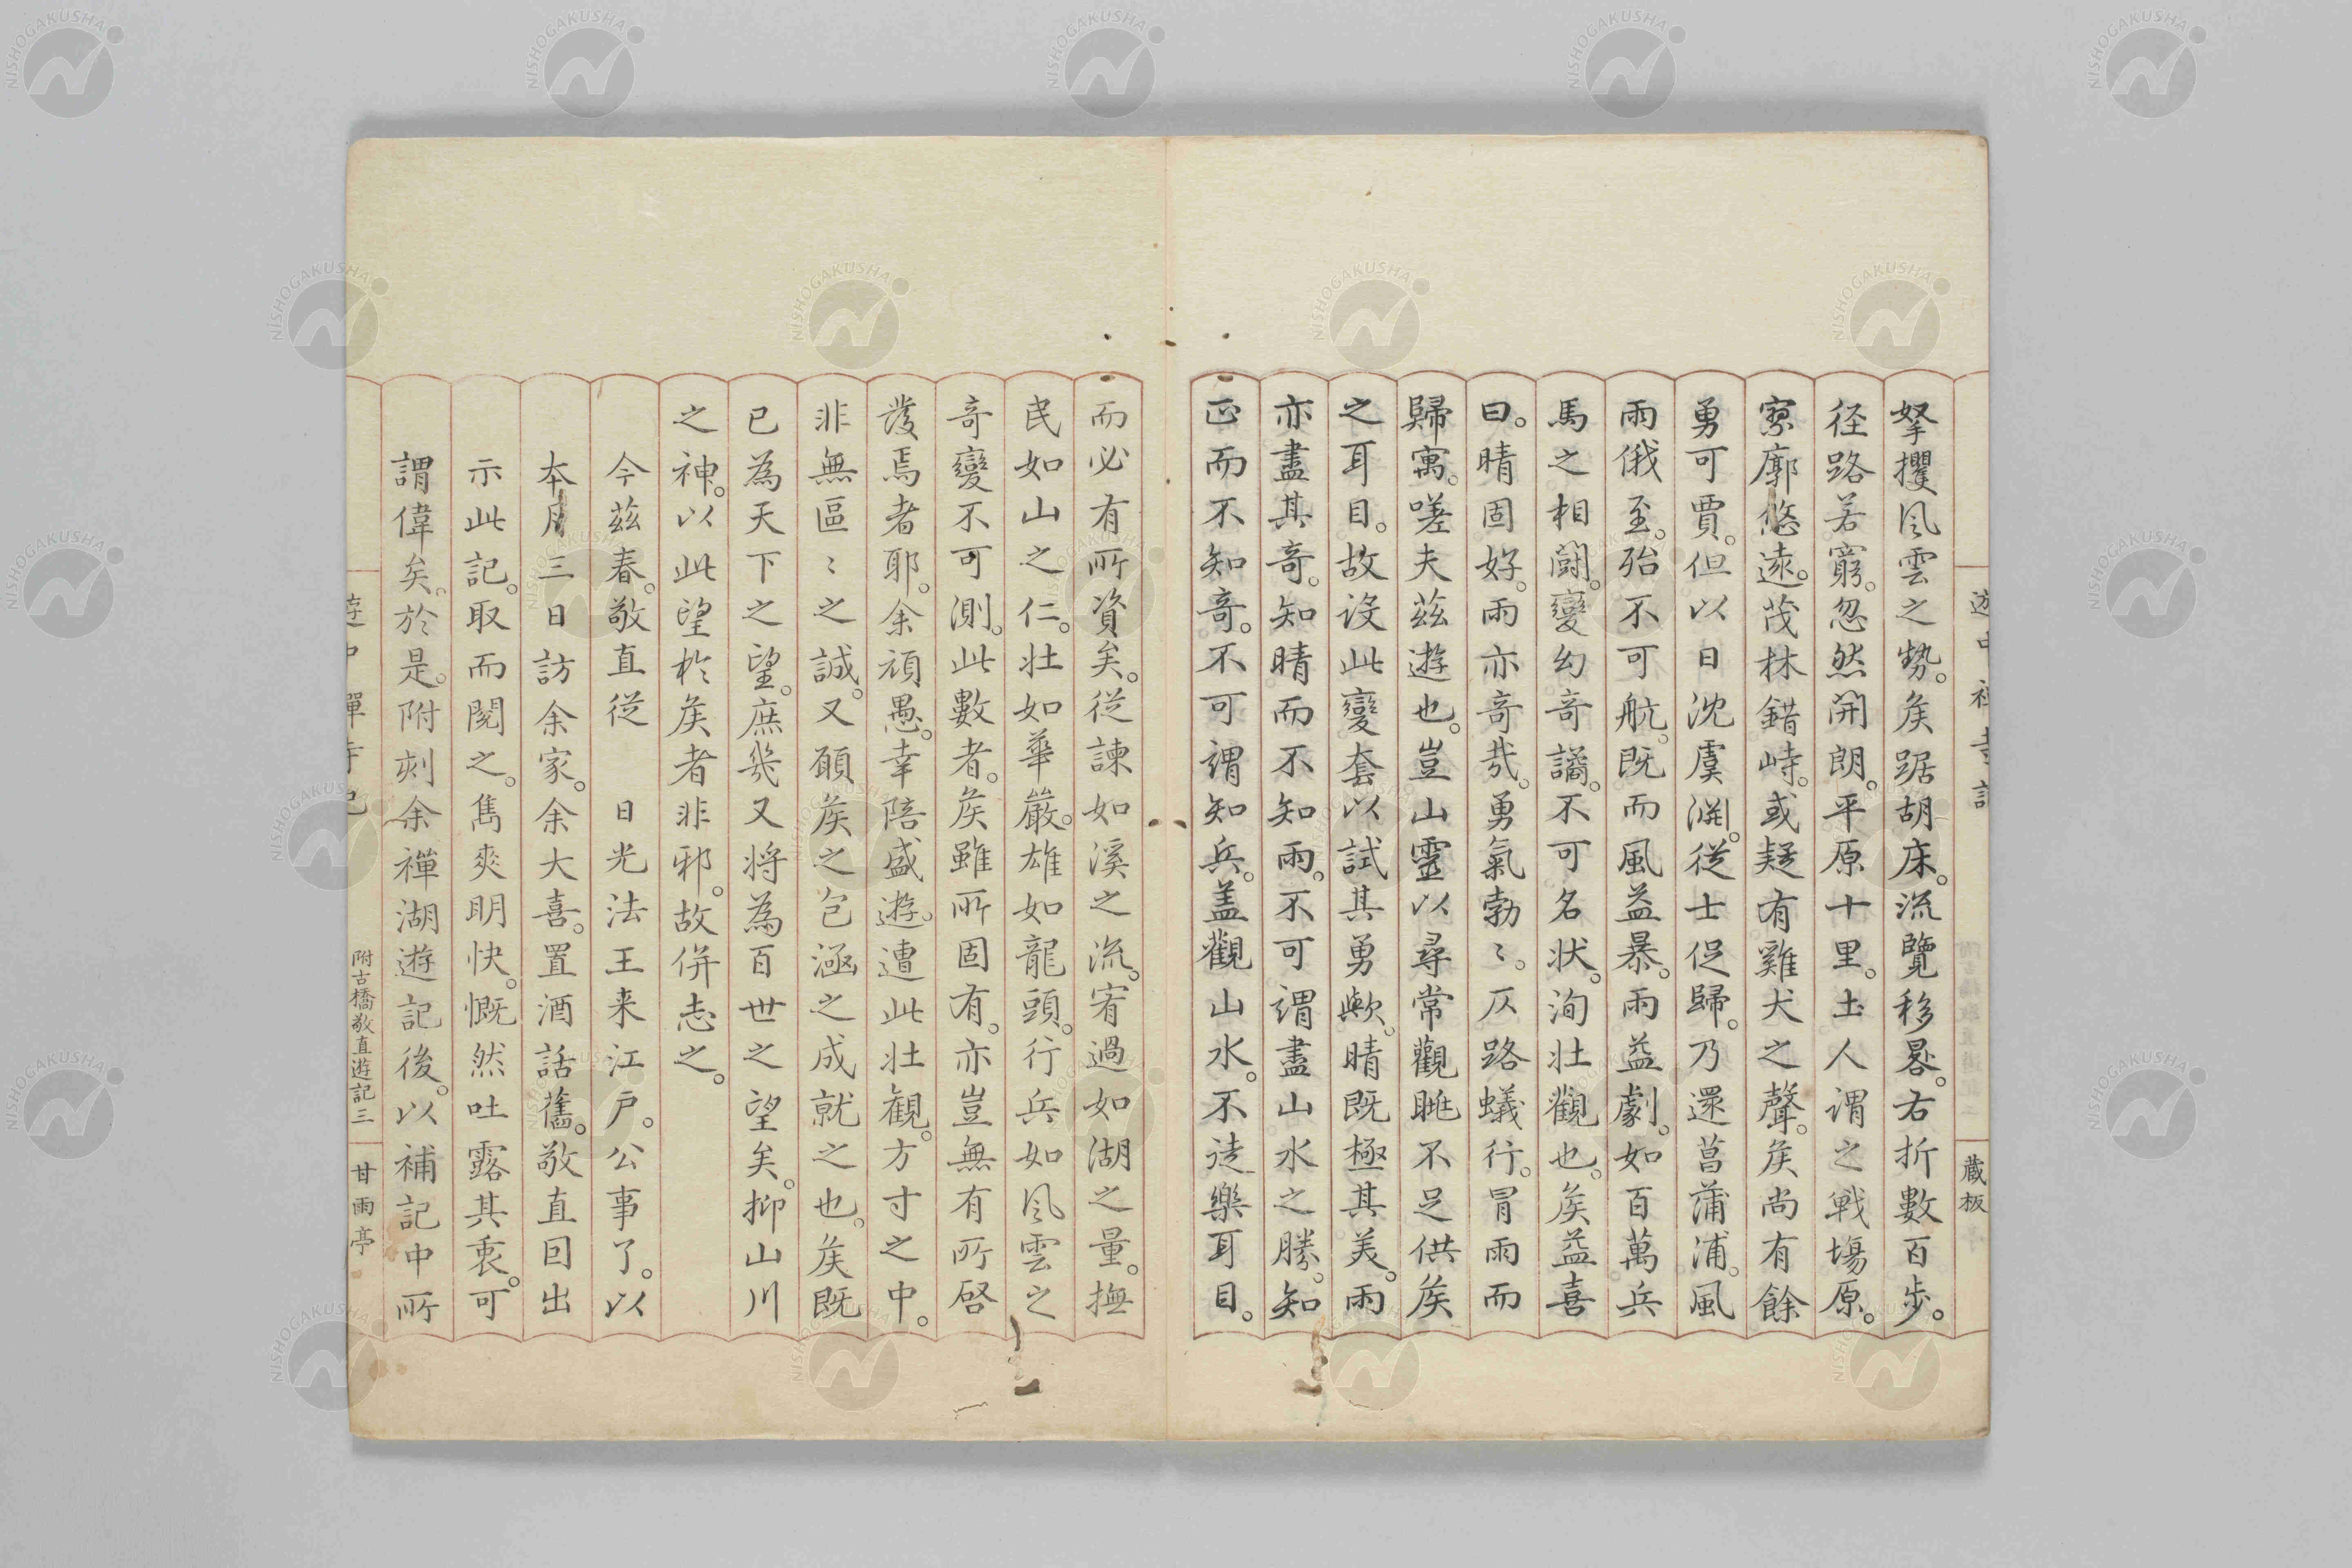 遊中禅寺記
蔵板
拏攫風雲之勢。矦踞胡床。流覽移晷。右折數百步。
径路若窮。忽然開朗。平原十里。土人謂之戦場原。
寥廓悠遠。茂林錯峙。或疑有雞犬之聲。矦尚有餘
勇可賈。但以日沈虞淵。従士促歸。乃還菖蒲浦。風
雨俄至。殆不可航。既而風益暴。雨益劇。如百萬兵
馬之相闘。變幻奇譎。不可名状。洵壮觀也。矦益喜
曰。晴固好。雨亦奇哉。勇氣勃〻。仄路蟻行。冐雨而
歸寓。嗟夫茲遊也。豈山靈以尋常觀眺不足供矦
之耳目。故設此變套以試其勇歟。晴既極其美。雨
亦盡其奇。知晴而不知雨。不可謂盡山水之勝。知
正而不知奇。不可謂知兵。盖觀山水。不徒樂耳目。
而必有所資矣。従諫如溪之流。宥過如湖之量。撫
民如山之仁。壮如華嚴。雄如龍頭。行兵如風雲之
奇變不可測。此數者。矦雖所固有。亦豈無有所啓
發焉者耶。余頑愚。幸陪盛遊。遭此壮観。方寸之中。
非無區〻之誠。又願矦之包涵之成就之也。矦既
已為天下之望。庶幾又将為百世之望矣。抑山川
之神。以此望於矦者非邪。故併志之。
今茲春。敬直従　日光法王来江戸。公事了。以
本月三日訪余家。余大喜。置酒話舊。敬直囙出
示此記。取而閱之。雋爽明快。慨然吐露其衷。可
謂偉矣。於是。附刻余禪湖遊記後。以補記中所
遊中禪寺記
附古橋敬直遊記三
甘雨亭